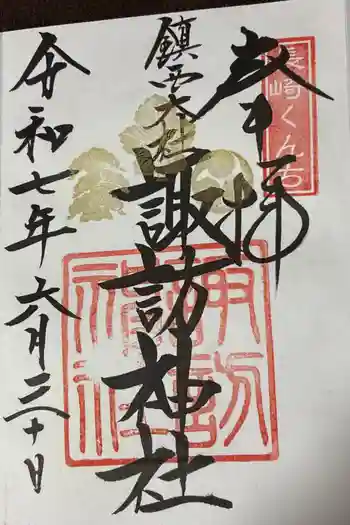 長崎くんち
奉拝
鎮西大社
諏訪神社
令和七年六月三十日
諏訪神社